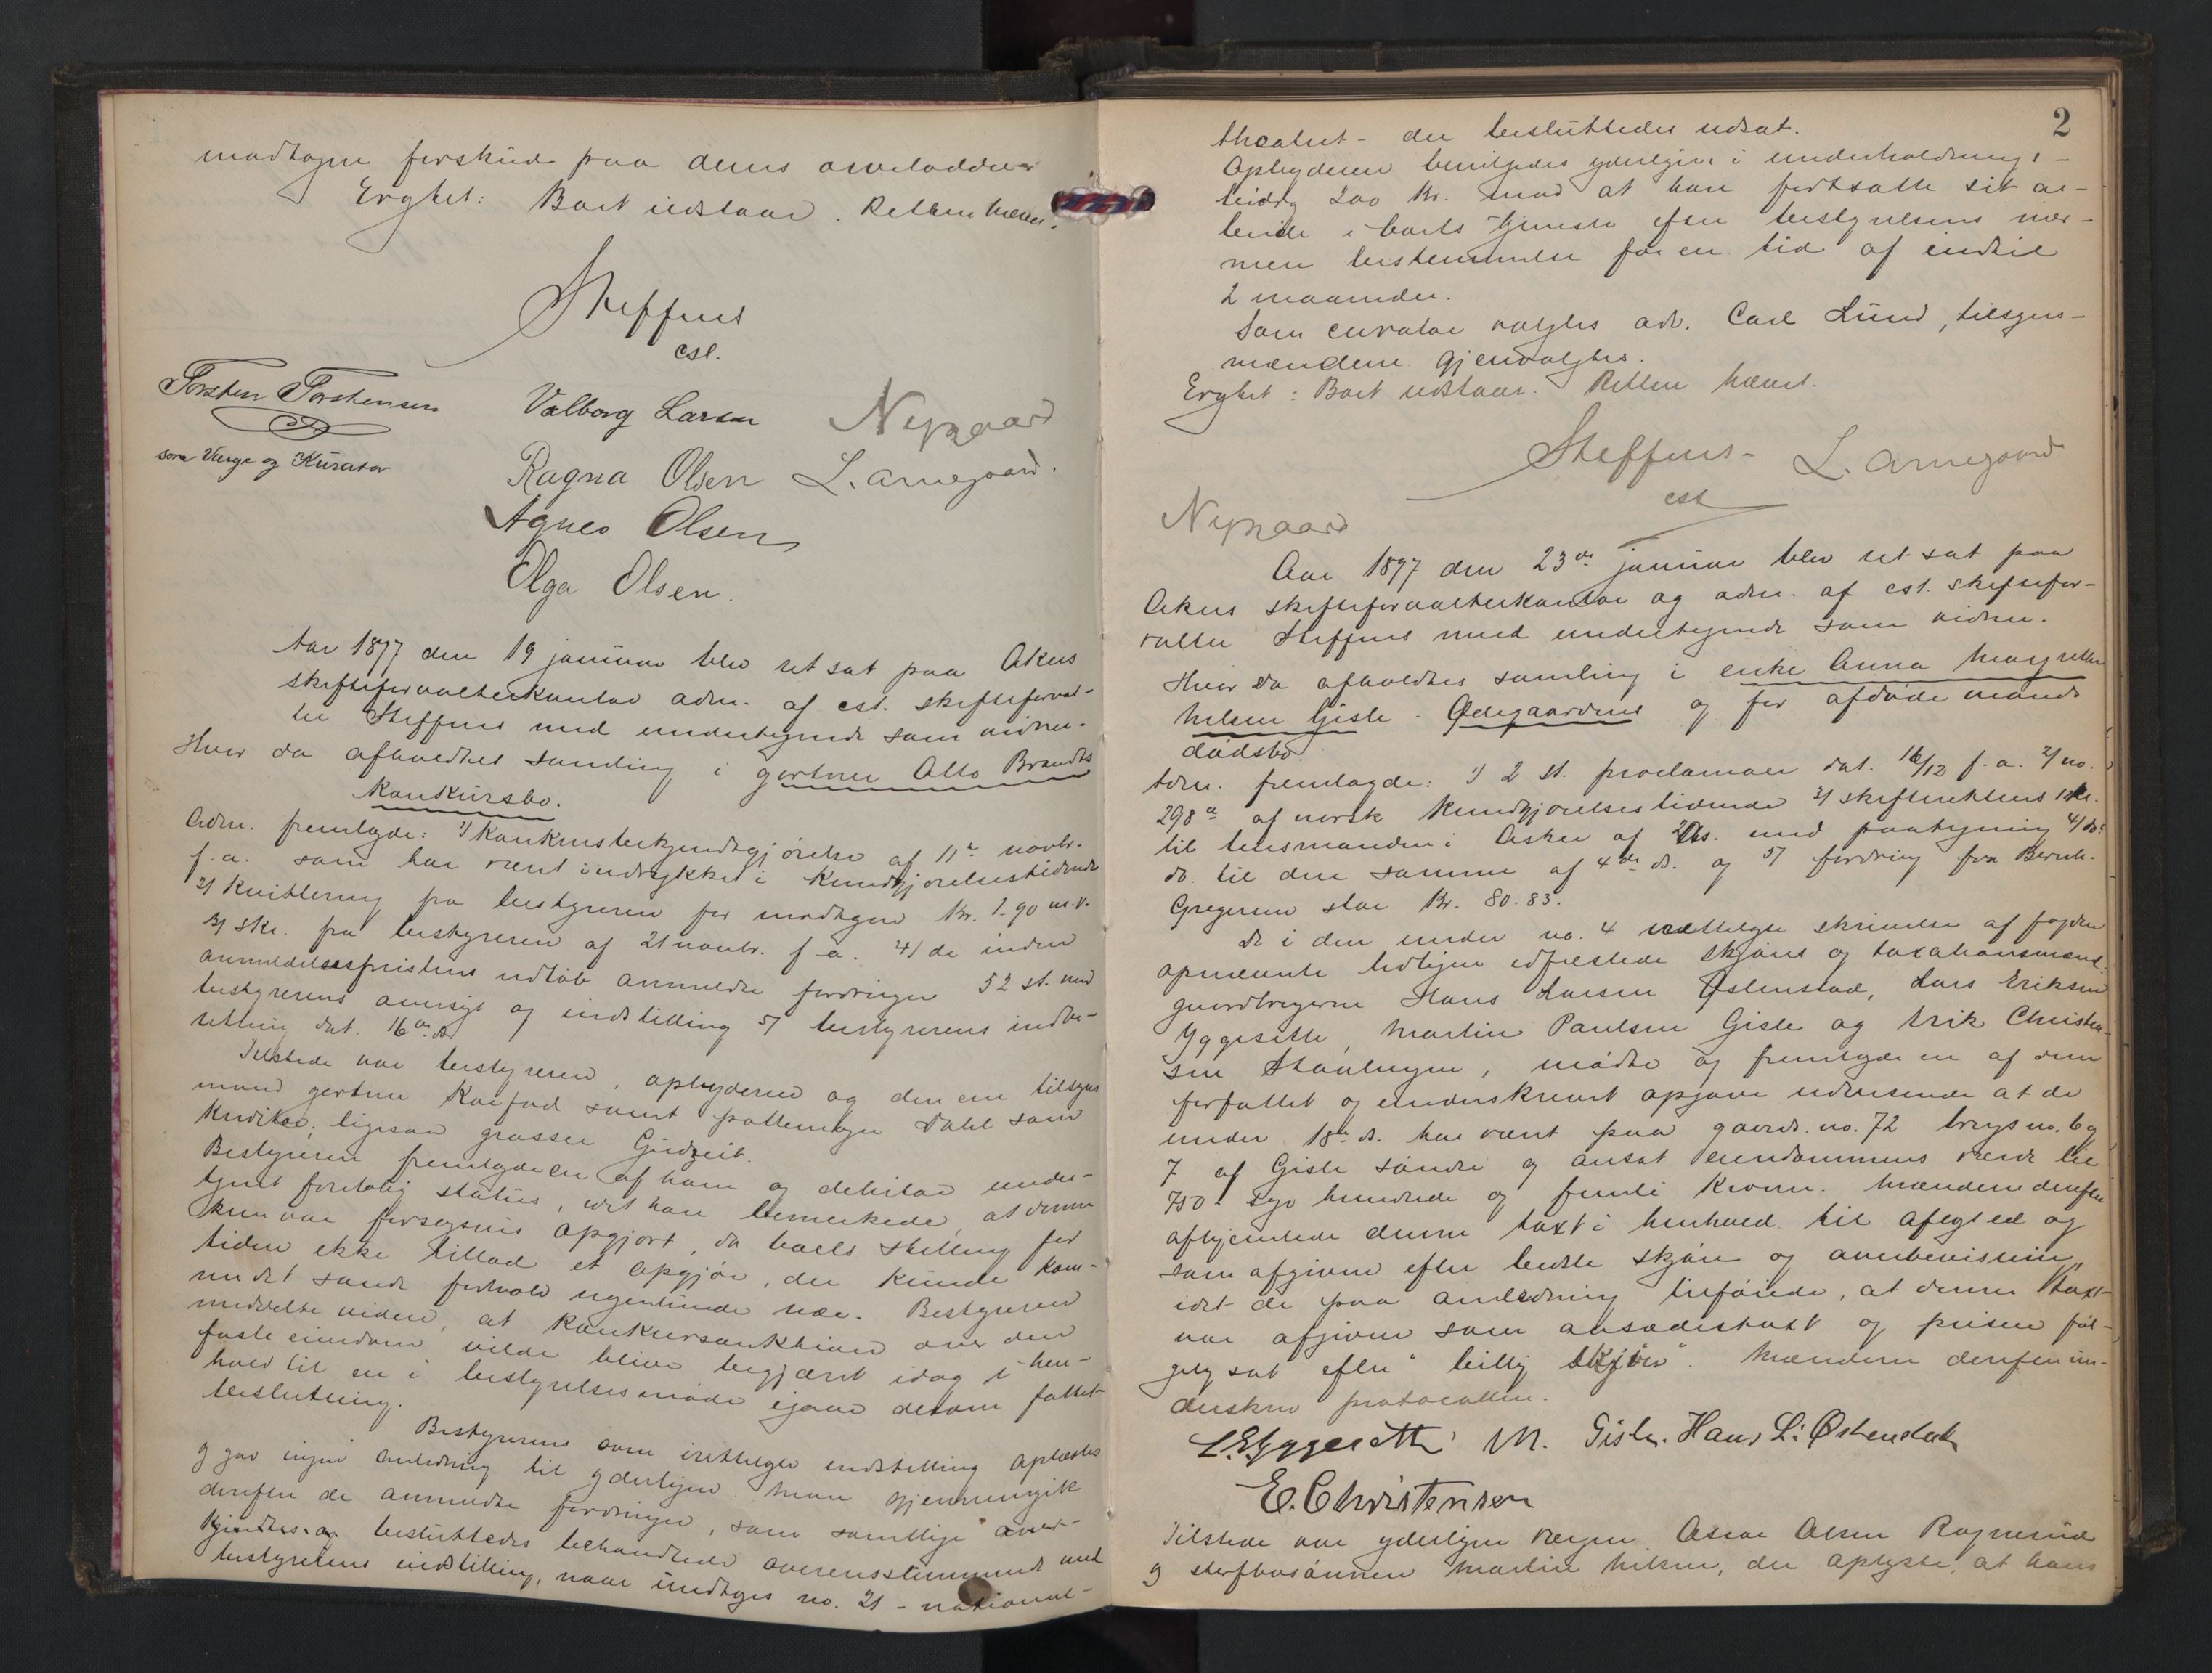 modtagne forskud paa deres arvelodder
Eragtet: Boet udstaar. Retten hævet.
Steffens
cst.
Torsten Torstensen
som Værge og Kurator
Valborg Larsen
Nygaard
Ragna Olsen
L. Arnegaard.
Agnes Olsen
Olga Olsen.
Aar 1897 den 19 januar blev ret sat paa Akers
skifteforvalterkontor adm. af cst. skifteforval-
ter Steffens med undertegnede som vidner.
Hvor da afholdtes samling i gartner Otto Brandts
konkursbo.
Adm. fremlagde: 1/ Konkursbekjendtgjørelse af 11te novbr.
f.a. som har været indrykket i Kundgjørelsestidende
2/ Kvittering fra bestyreren for modtagne Kr. 1.90 m.v.
3/ skr. fra bestyreren af 21 novbr. f.a. 4/ de inden
anmeldelsesfristens udløb anmeldte fordringer 52 st. med
bestyrerens oversigt og indstilling 5/ bestyrerens indbe-
retning dat. 16de ds.
Tilstede var bestyreren, opbyderen og den ene tilsyns
mand gartner Kofod samt pottemager Dahl som
kreditor, ligesaa grosser Gudzeit.
Bestyreren fremlagde en af ham og debitor under-
tegnet foreløbig status, idet han bemerkede, at denne
kun var forsøgsvis opgjort, da boets stilling for
tiden ikke tillod et opgjør, der kunde kom-
me det sande forhold nogenlunde nær. Bestyreren
meddelte videre, at konkursauktion over den
faste eiendom vilde blive begjæret idag i hen-
hold til en i bestyrelsesmøde igaar derom fattet
beslutning.
Bestyrerens oven irettelagte indstilling oplæstes
og gav ingen anledning til yderligere. Man gjennemgik
derefter de anmeldte fordringer, som samtlige aner-
kjendtes og besluttedes behandlede overensstemmende med
bestyrelsens indstilling, naar undtages no. 21 - national-
2
theatret - der besluttedes udsat.
Opbyderen bevilgedes yderligere i underholdnings-
bidrag 200 Kr. mod at han fortsatte sit ar-
beide i boets tjeneste efter bestyrelsens nær-
mere bestemmelse for en tid af indtil
2 maaneder.
Som curator valgtes adv. Carl Lund, tilsyns-
mændene gjenvalgtes.
Eragtet: Boet udstaar. Retten hævet.
Steffens
cst
L. Arnegaard
Nygaard
Aar 1897 den 23de januar blev ret sat paa
Akers skifteforvalterkontor og adm. af cst. skiftefor-
valter Steffens med undertegnede som vidner.
Hvor da afholdtes samling i enke Anna Margrethe
Nilsen Gisle - Ødegaardens og før afdøde mands
dødsbo.
Adm. fremlagde: 1/ 2 st. proclamaer dat. 16/12 f.a. 2/ no.
298 a af norsk Kundgjørelsestidende 3/ skifterettens skr.
til lensmanden i Asker af 2 ds. med paategning 4/ do.
do. til den samme af 4de ds. og 5/ fordring fra Bernh.
Gregersen stor Kr. 80.83.
De i den under no. 4 irettelagte skrivelse af fogden
opnævnte lovligen edfæstede skjøns og taxationsmænd
gaardbrugerne Hans Larsen Østenstad, Lars Eriksen
Yggesette, Martin Paulsen Gisle og Erik Christen-
sen, mødte og fremlagde en af dem
forfattet og underskrevet opgave udvisende at de
under 18de ds. har været paa gaards no. 72 brugs no. 6 og
7 af Gisle søndre og ansat eiendommens værdi til
750 - Syv hundrede og femti Kroner. Mændene derefter
afhjemlede denne taxt i henhold til aflagt ed og
som afgiven efter bedste skjøn og overbevisning
idet de paa anledning tilføiede, at denne taxt
var afgiven som aasædestaxt og prisen føl-
gelig sat efter "billig skjøn". Mændene derefter un-
derskrev protocollen.
L. E. Yggesette M. Gisle. Hans L. Østenstad
E. Christensen
Tilstede var yderligere værgen Oscar Olsen Rognerud
og sterfbosønnen Martin Nilsen, der oplyste, at hans